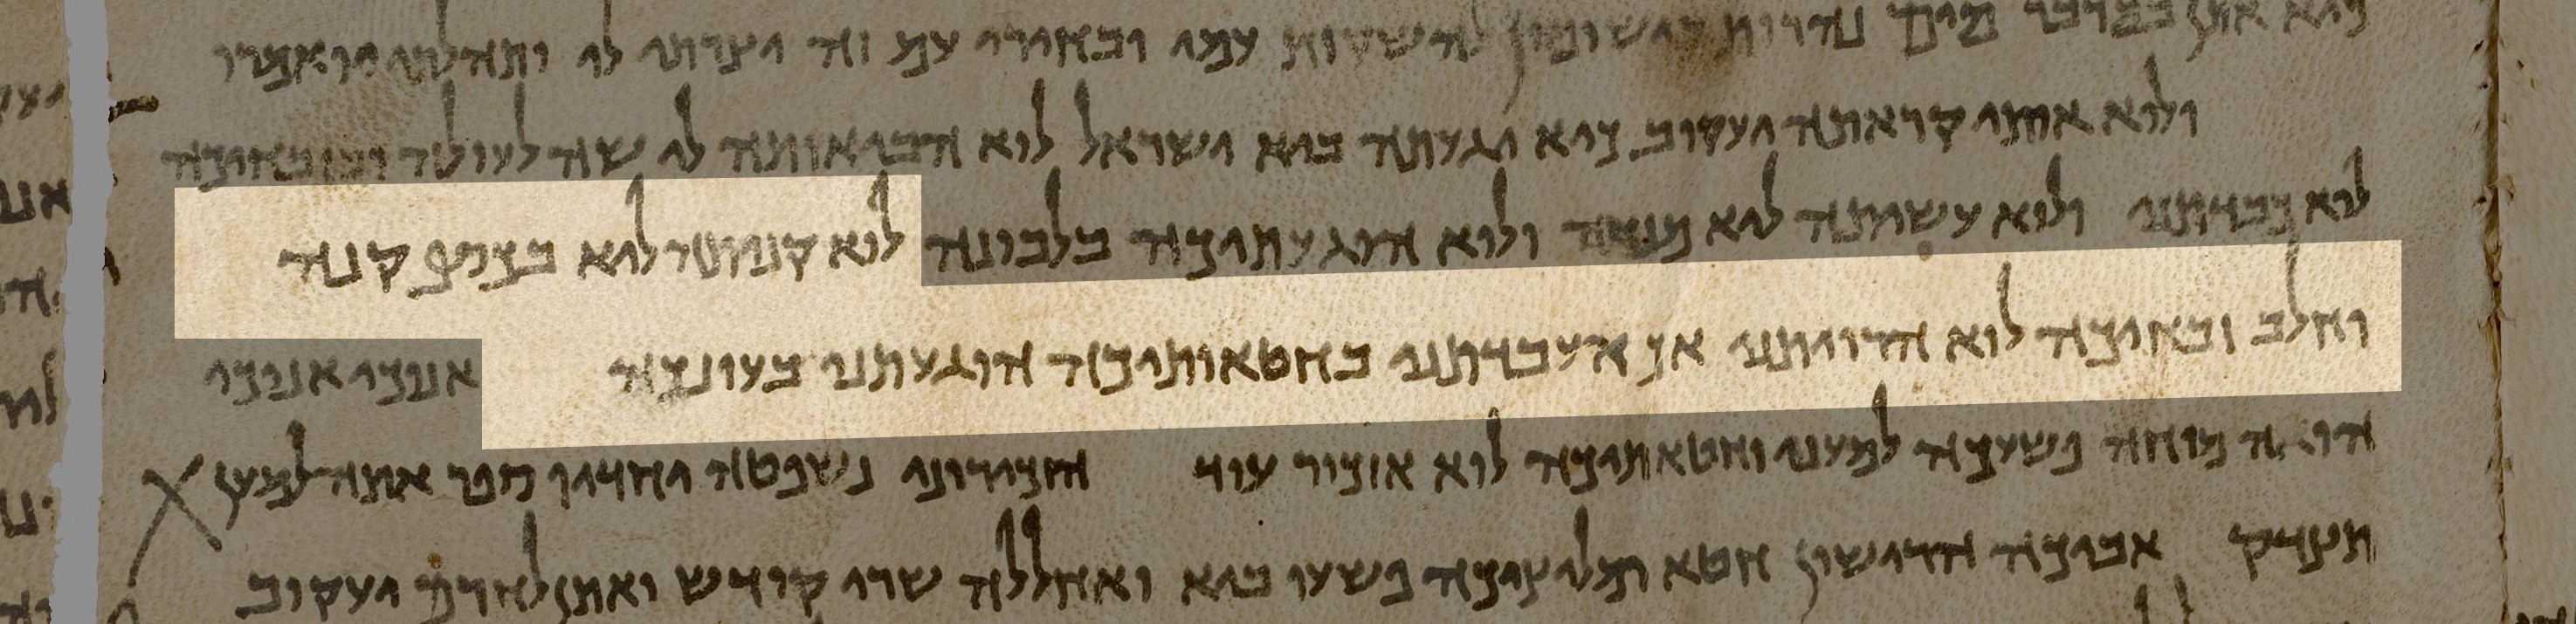 כיא אתן במדבר מים נהרות בישימון להשקות עמי ובחירי עם זה יצרתי לי ותהלתי יואמרו
ולוא אותי קראתה יעקוב כיא יגעתה ביא ישראל לוא הביאותה לי שה לעולה ובזבחיכה
לוא כבדתני ולוא עשיתה ליא מנחה ולוא הוגעתיכה בלבונה לוא קניתה ליא בכסף קנה
וחלב זבחיכה לוא הרויתני אך העבדתני בחטאותיכה הוגעתני בעונכה אנוכי אנוכי
הואה מוחה פשעכה למעני וחטאתיכה לוא אזכור עוד הזכירוני נשפטה יחדיו ספר אתה למען
תצדק אביכה הרישון חטא ומליציכה פשעו ביא ואחללה שרי קודש ואתן לחרם יעקוב